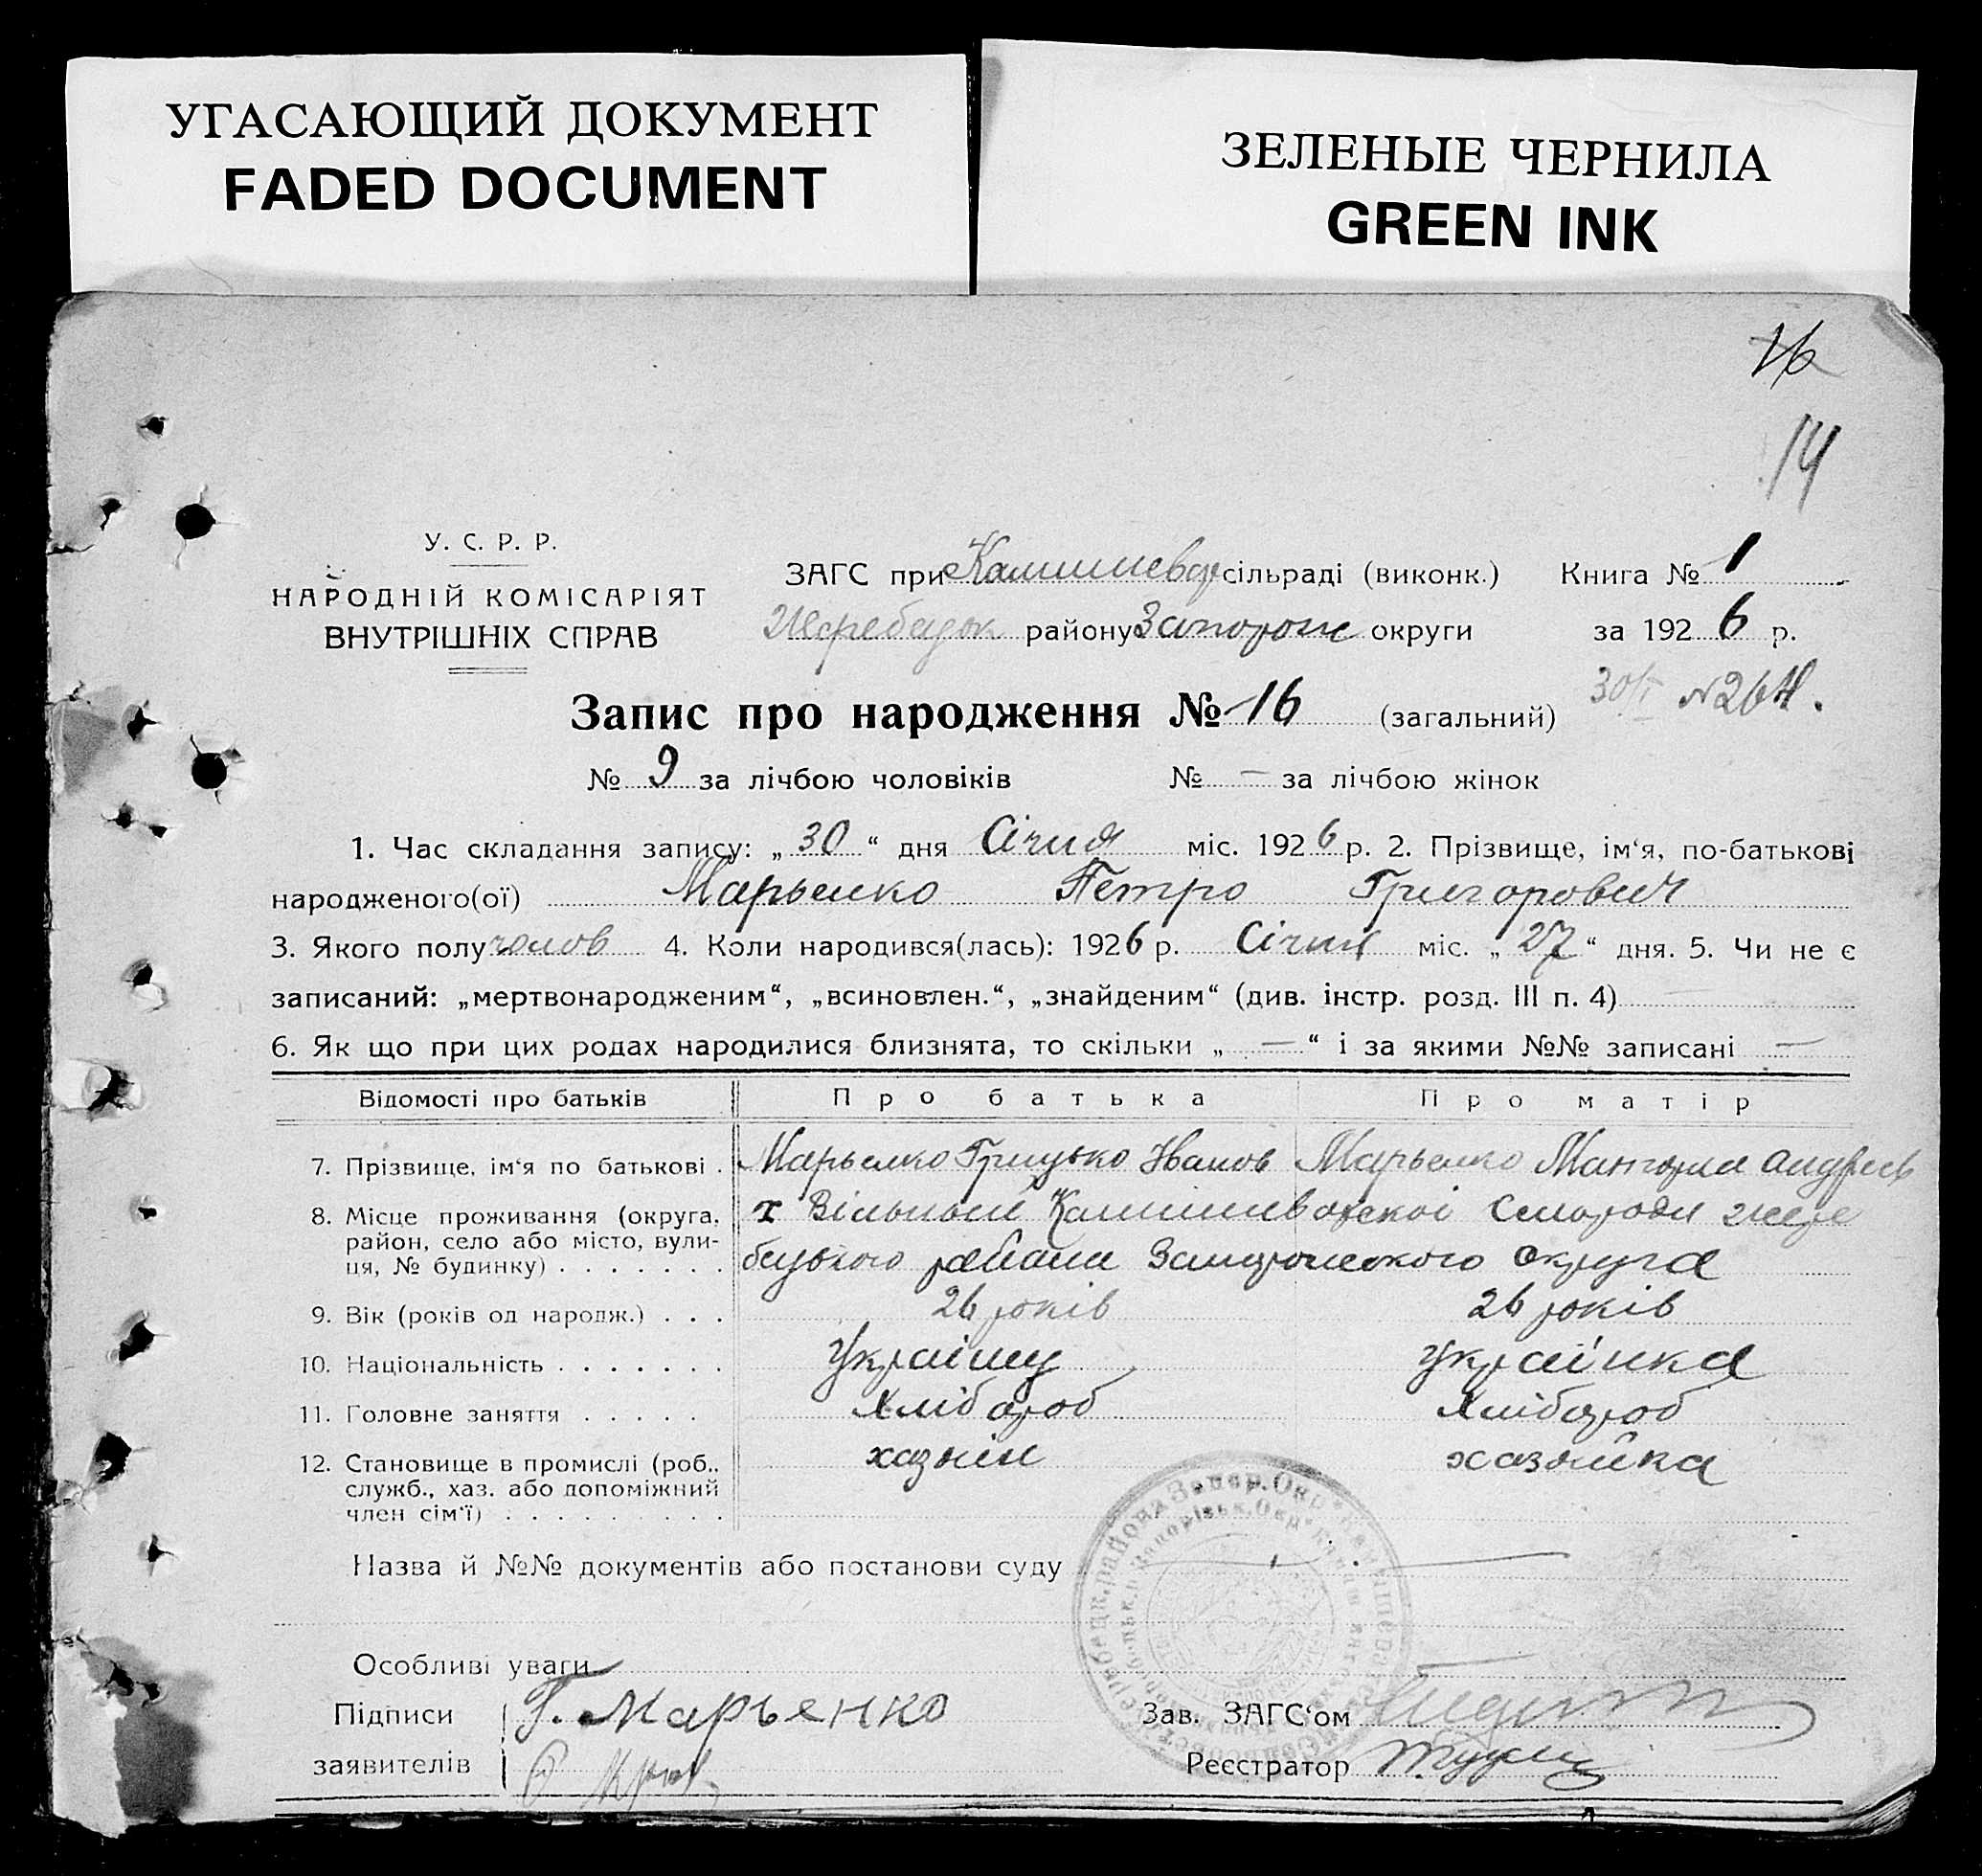 УГАСАЮЩИЙ ДОКУМЕНТ
FADED DOCUMENT
ЗЕЛЕНЫЕ ЧЕРНИЛА
GREEN INK
16
14
У. С. Р. Р.
НАРОДНІЙ КОМІСАРІЯТ
ВНУТРІШНІХ СПРАВ
ЗАГС при Камишевар сільраді (виконк.) Книга № 1
Жеребецьк району Запорож округи за 1926 р.
30/I №264.
Запис про народження № 16 (загальний)
№ 9 за лічбою чоловіків № — за лічбою жінок
1. Час складання запису: „30“ дня Січня міс. 1926 р. 2. Прізвище, ім‘я, по-батькові
народженого(ої) Марьенко Петро Григорович
3. Якого полу чолов 4. Коли народився(лась): 1926 р. Січня міс. „27“ дня. 5. Чи не є
записаний: „мертвонародженим“, „всиновлен.“, „знайденим“ (див. інстр. розд. III п. 4)
6. Як що при цих родах народилися близнята, то скільки „—“ і за якими №№ записані —
Відомості про батьків Про батька Про матір
7. Прізвище, ім‘я по батькові . Марьенко Грицько Иванов Марьенко Андреев
8. Місце проживання (округа, район, село або місто, вулиця, № будинку) . . . . . . .
х Вільный Камишеварської Сельради жере
бецького района Запорожского Округа
9. Вік (років од народж.) . . . 26 років 26 років
10. Національність . . . . . . . Українец Українка
11. Головне заняття . . . . . Хлібороб Хлібороб
12. Становище в промислі (роб., служб., хаз. або допоміжний член сім‘ї) . . . . . . . . . хазяін хазяйка
Назва й №№ документів або постанови суду —
Особливі уваги
Підписи Г. Марьенко Зав. ЗАГС‘ом
заявителів Реєстратор